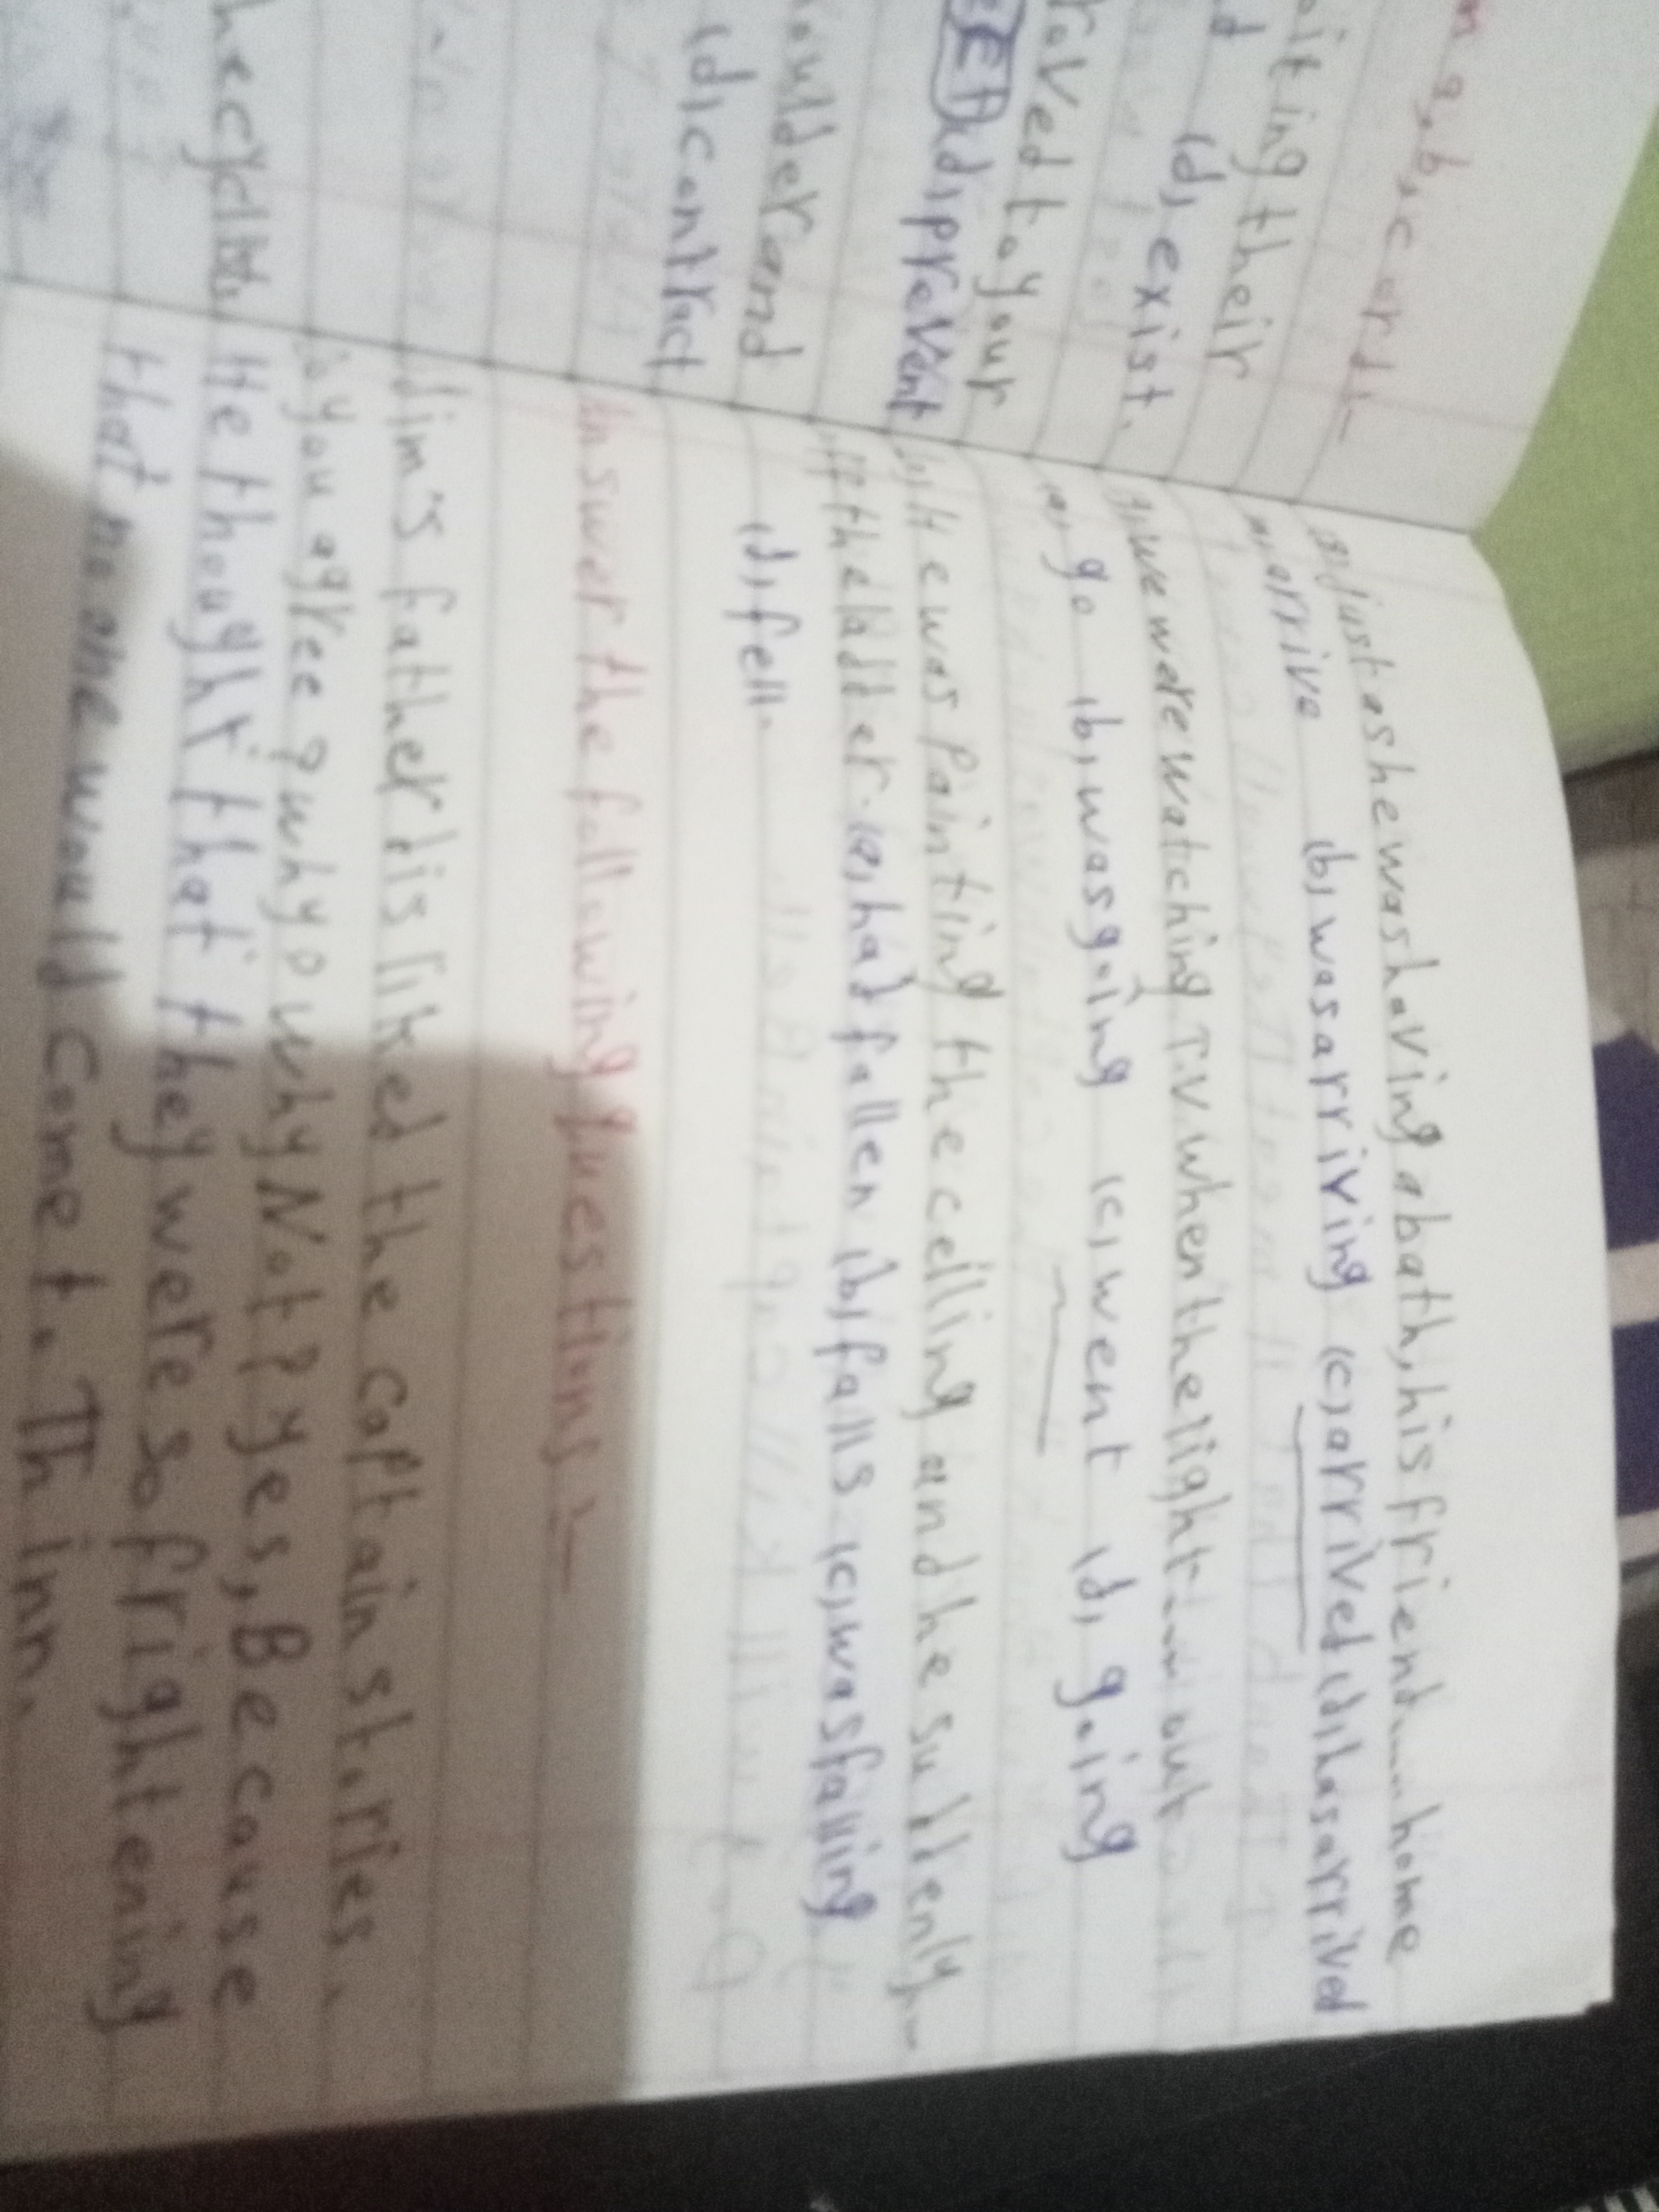 n a, b, c or d:-
iting their
d (d) exist.
roved to your
EET (d) prevent
oulder and
(d) contract
he cyclist,
8) Just as he was having a bath, his friend.... home
(a) arrive (b) was arriving (c) arrived (d) has arrived
9) we were watching T.V. when the light ..... out
(a) go (b) was going (c) went (d) going
10) He was Painting the celling and he suddenly --
off the ladder. (a) had fallen (b) falls (c) was falling
(d) fell.
Answer the following questions:-
Jim's father disliked the captain stories.
Do you agree? why o why Not? yes, Because
He thought that they were so frightening
that no one would come t. Th inn.